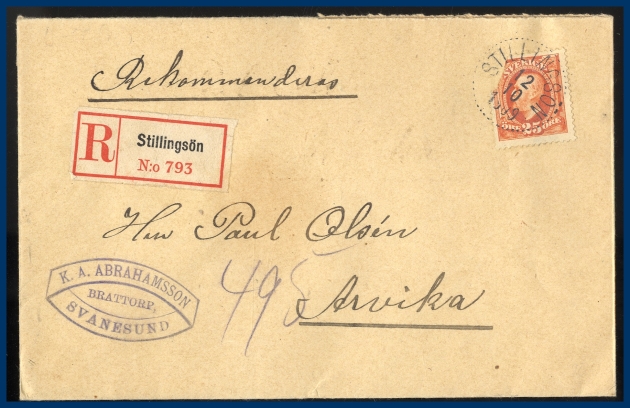 Rekommenderas
STILLINGSÖN
2
10
SVERIGE
ÖRE 25 ÖRE
R
Stillingsön
N:o 793
Herr Paul Olsén
495
Arvika
K. A. ABRAHAMSSON
BRATTORP,
SVANESUND